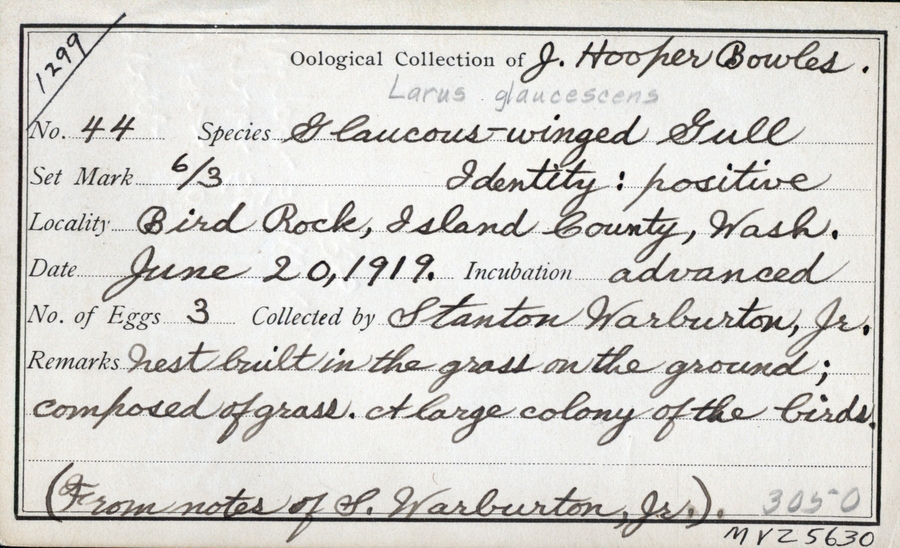 1299
Oological Collection of J. Hooper Bowles.
Larus glaucescens
No. 44 Species Glaucous-winged Gull
Set Mark 6/3 Identity: positive
Locality Bird Rock, Island County, Wash.
Date June 20, 1919. Incubation advanced
No. of Eggs 3 Collected by Stanton Warburton, Jr.
Remarks Nest built in the grass on the ground;
composed of grass. A large colony of the birds.
(From notes of S. Warburton, Jr.). 3050
MVZ 5630